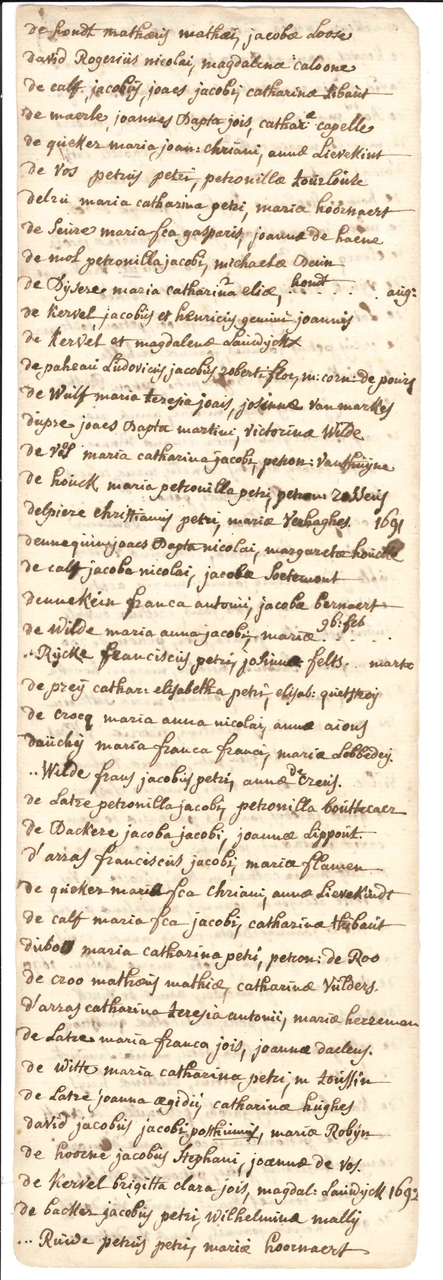 de hondt mathæus mathæi, jacobæ Loose
david Rogerius nicolai, magdalenæ caloone
de calf jacobus, joaes jacobi, catharinæ tibaut
de maerle, joannes Bapta jois, cathar.æ capelle
de queker maria joan: chriani, annæ Lievekint
de Vos petrus petri, petronillæ
delrü maria catharina petri, mariæ hoornaert
de Seure maria fca gasparis, joannæ de haene
de mol petronilla jacobi, michaelæ
de maria catharina eliæ, hondt . . . . aug:
de Kervel jacobus et henricus gemini joannis
de Kervel et magdalenæ Lauwyckx
de paheau Ludovicus jacobus roberti flor, m: corn: de pours
de Wulf maria teresia joais, josinnæ van markes
dupre joaes Bapta martini, victorinæ Wilde
de Vos maria catharina jacobi, petron: Vanthuyne
de houck maria petronilla petri, petron:
delpiere christianus petri, mariæ Verhaghes 1691
dennequin joaes Bapta nicolai, margaretæ houcke
de calf jacoba nicolai, jacobæ Soetemont
dennekein franca antonii, jacobæ bernaert
de Wilde maria anna jacobi, mariæ . . 9b: feb . .
.. Rycke franciscus petri, josinnæ felts . . martæ
de prey cathar: elisabetha petri, elisab: quetstroy
de crocq maria anna nicolai, annæ aious
dauchy maria franca franci, mariæ Lobbedey.
.. Wilde frans jacobus petri, annæ De Creus.
de Latre petronilla jacobi, petronilla bouttecaer
de Backere jacoba jacobi, joannæ Lippout
d'arras franciscus jacobi, mariæ flamen
de queker maria fca chriani, annæ Lievekindt
de calf maria fca jacobi, catharinæ thibaut
dubois maria catharina petri, petron: de Roo
de croo mathæus mathiæ, catharinæ Vulders.
d'arras catharina teresia antonii, mariæ herreman
de Latre maria franca jois, joannæ daeleus.
de Witte maria catharina petri, m toussin
de Latre joanna ægidii, catharinæ hughes
david jacobus jacobi posthumus, mariæ Robyn
de hoorne jacobus Stephani, joannæ de Vos.
de Kervel brigitta clara jois, magdal: Lauwyck 1692
de backer jacobus petri, Wilhelminæ mally
... Ruwe petrus petri, mariæ hoornaert